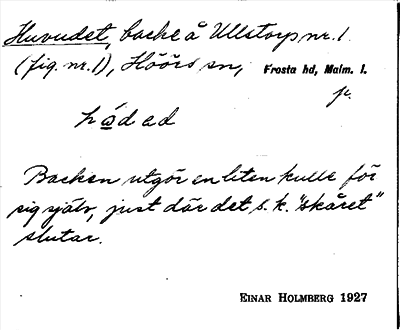 Huvudet, backe å Ullstorp nr. 1
(fig. nr. 1), Höörs sn, Frosta hd, Malm. l.
hǫdad
Backen utgör en liten kulle för
sig själv, just där det s. k. "skåret"
slutar.
EINAR HOLMBERG 1927